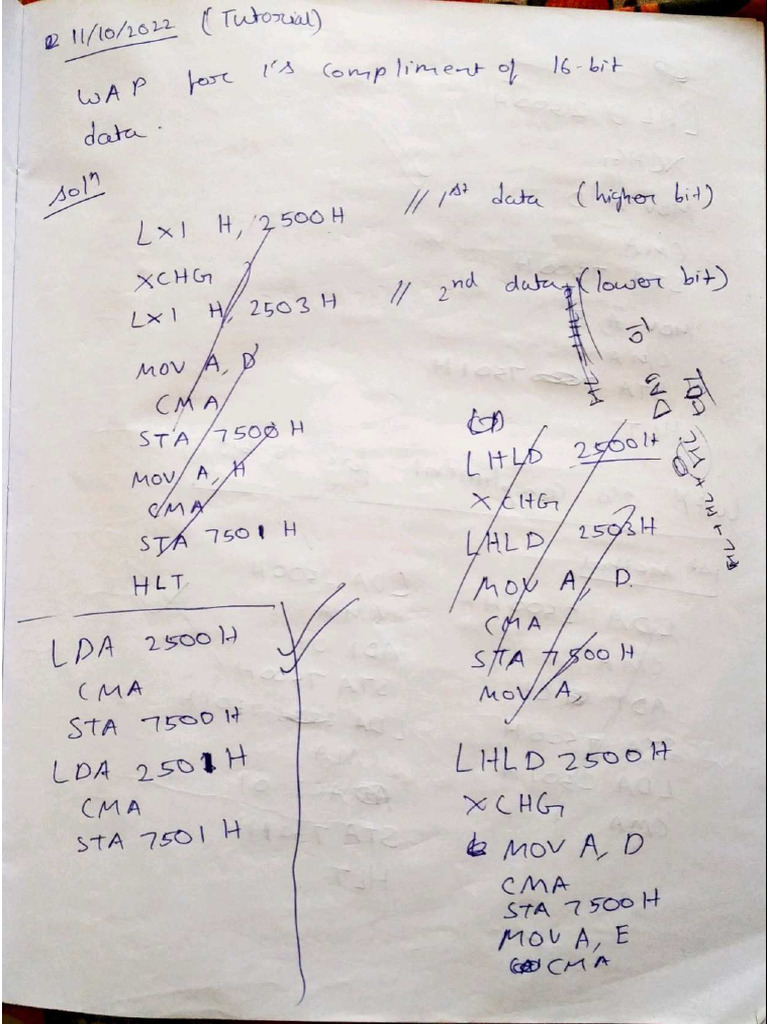 11/10/2022 (Tutorial)
WAP for 1's compliment of 16-bit
data.
Solⁿ
LXI H, 2500H // 1st data (higher bit)
XCHG
LXI H, 2503H // 2nd data (lower bit)
MOV A, D
CMA
STA 7500H
MOV A, H
CMA
STA 7501H
HLT
LDA 2500H
CMA
STA 7500H
LDA 2501H
CMA
STA 7501H
LHLD 2500H
XCHG
LHLD 2503H
MOV A, D.
CMA
STA 7500H
MOV A,
LHLD 2500H
XCHG
MOV A, D
CMA
STA 7500H
MOV A, E
CMA